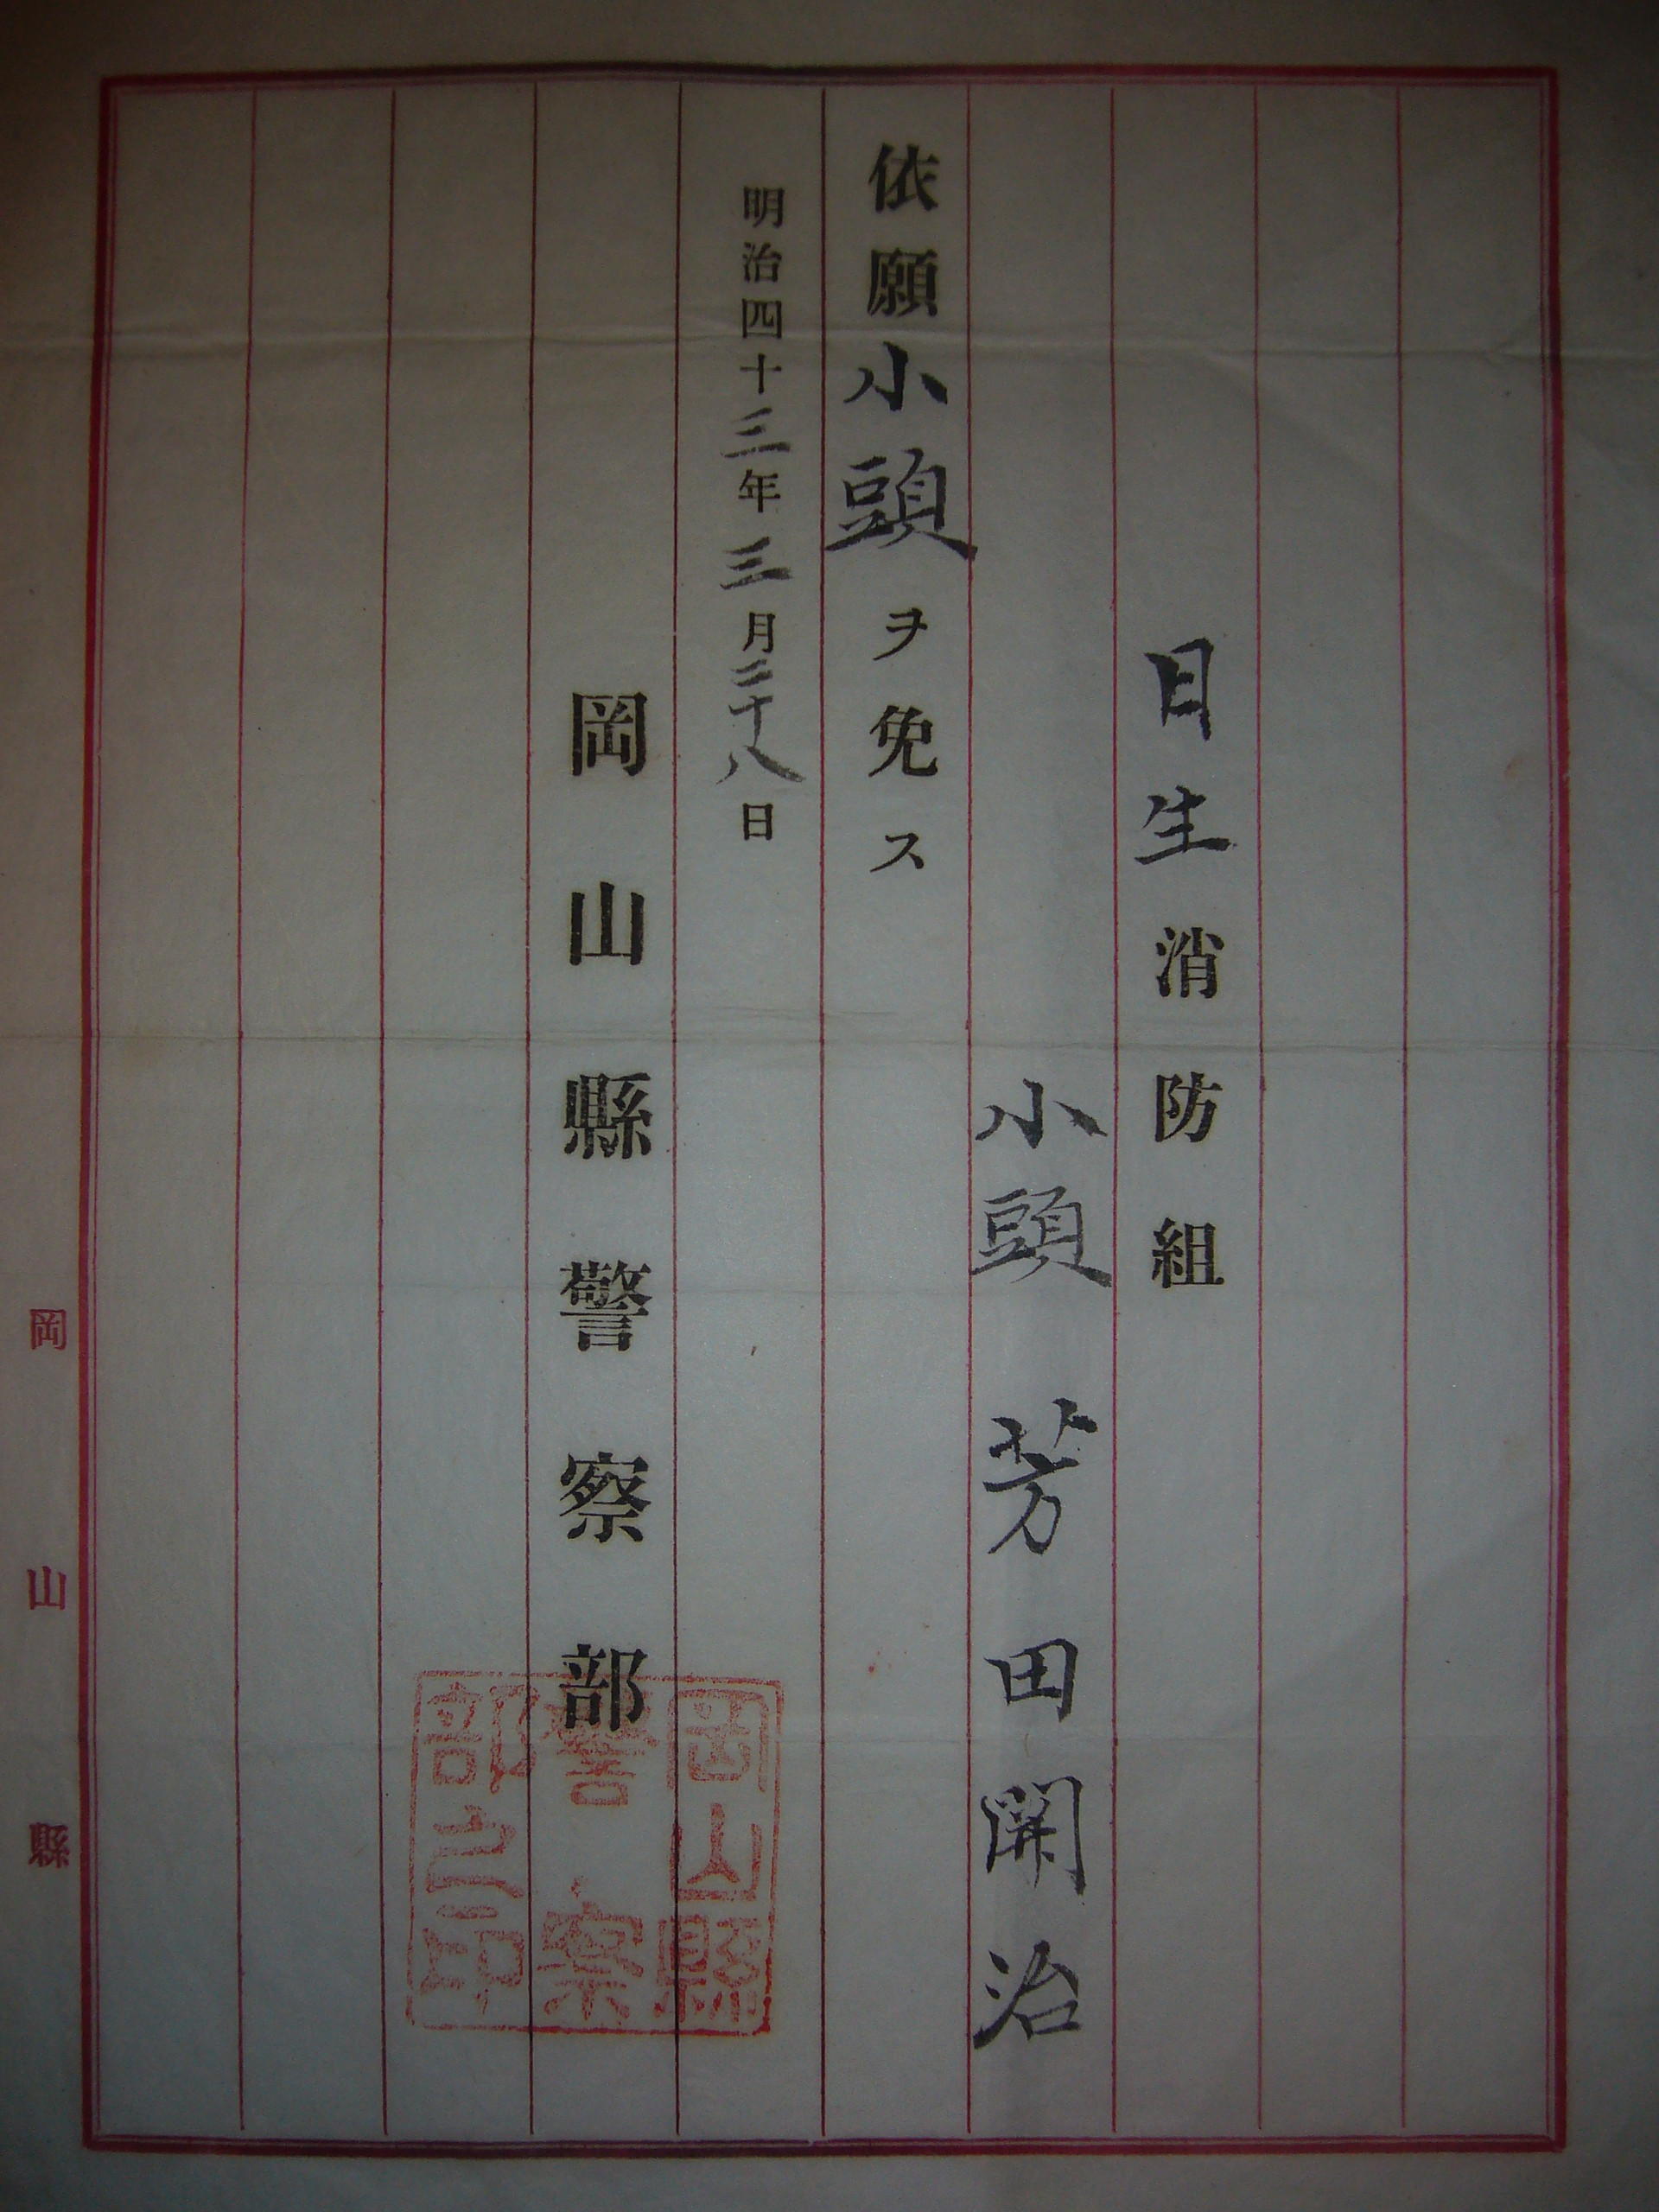 日生消防組
小頭 芳田開治
依願小頭ヲ免ス
明治四十三年三月二十八日
岡山縣警察部
岡山縣
警察
部之印
岡山縣